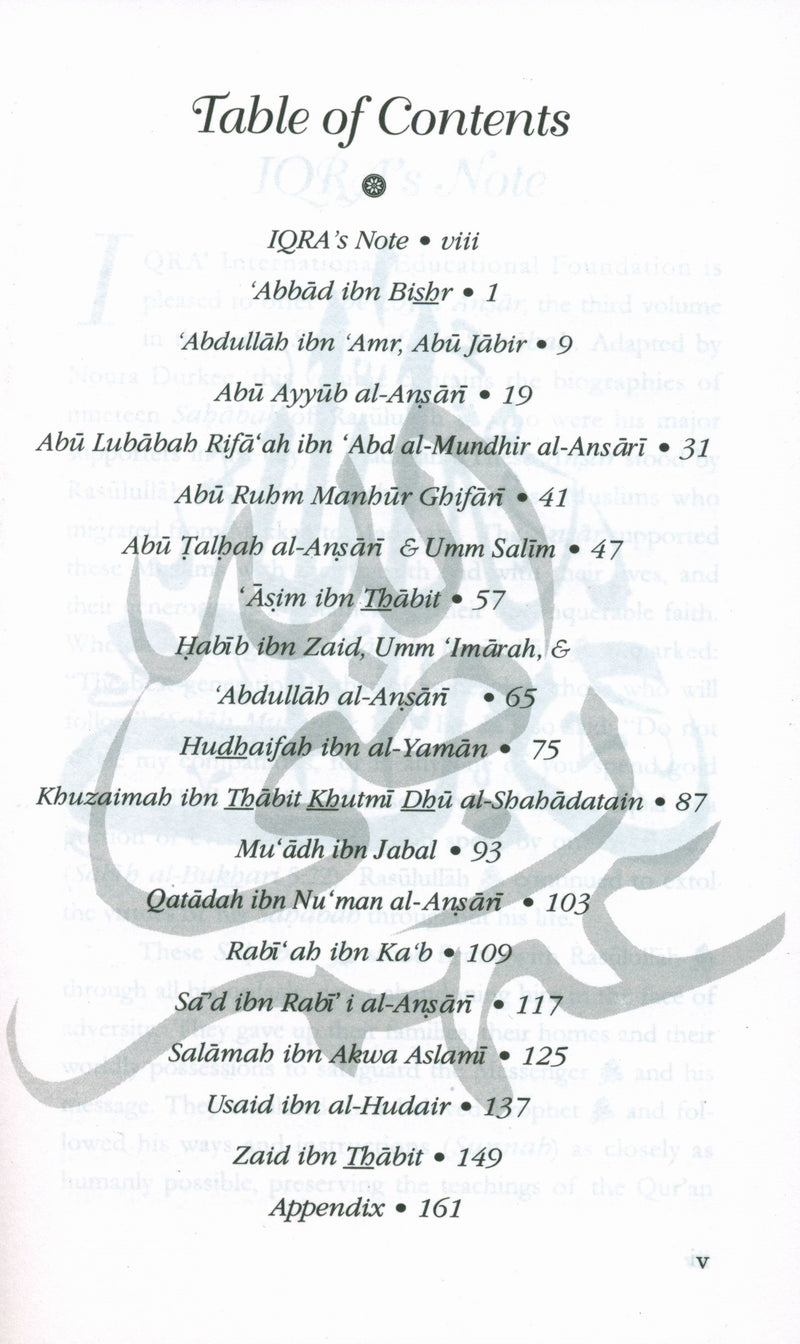 Table of Contents
IQRA's Note • viii
‘Abbād ibn Bishr • 1
‘Abdullāh ibn ‘Amr, Abū Jābir • 9
Abū Ayyūb al-Anṣārī • 19
Abū Lubābah Rifā‘ah ibn ‘Abd al-Mundhir al-Ansārī • 31
Abū Ruhm Manhūr Ghifārī • 41
Abū Ṭalḥah al-Anṣārī & Umm Salīm • 47
‘Āṣim ibn Thābit • 57
Ḥabīb ibn Zaid, Umm ‘Imārah, &
‘Abdullāh al-Anṣārī • 65
Hudhaifah ibn al-Yamān • 75
Khuzaimah ibn Thābit Khutmī Dhū al-Shahādatain • 87
Mu‘ādh ibn Jabal • 93
Qatādah ibn Nu‘man al-Anṣārī • 103
Rabī‘ah ibn Ka‘b • 109
Sa’d ibn Rabī’ i al-Anṣārī • 117
Salāmah ibn Akwa Aslamī • 125
Usaid ibn al-Hudair • 137
Zaid ibn Thābit • 149
Appendix • 161
v